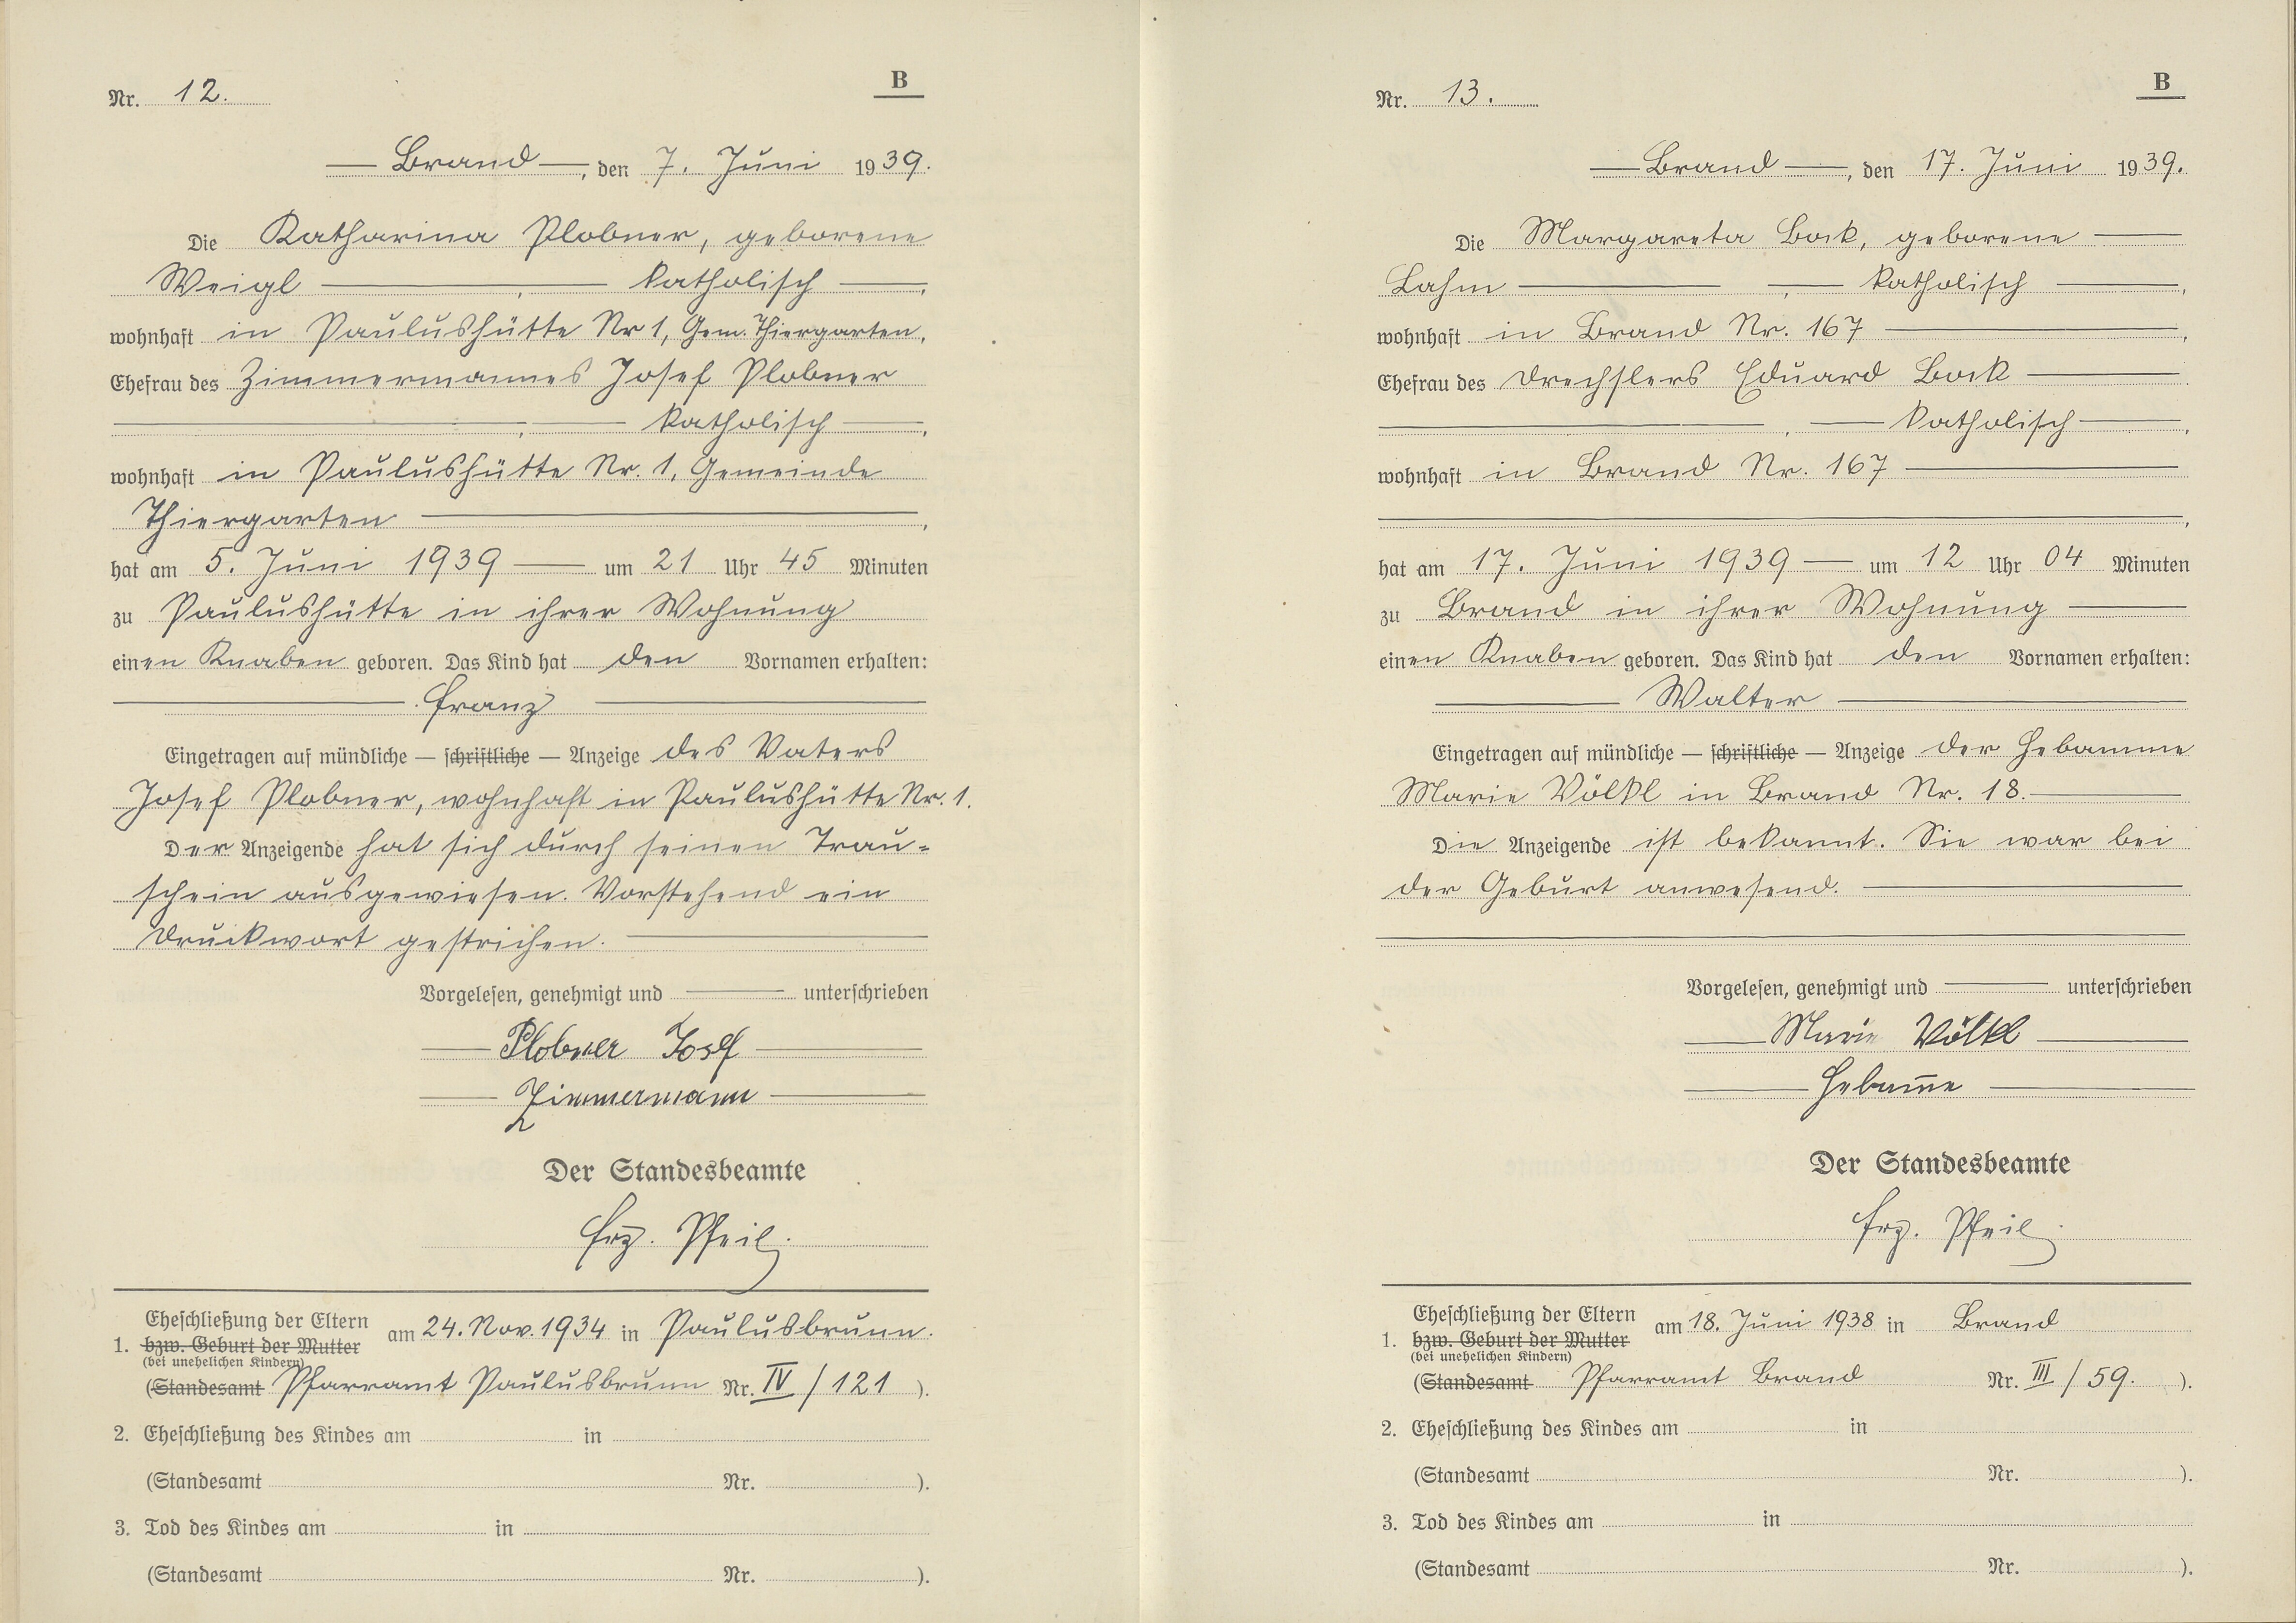 Nr. 12.
B
Brand, den 7. Juni 1939.
Die Katharina Plobner, geborene
Weigl, katholisch,
wohnhaft in Paulushütte Nr 1, Gem. Thiergarten,
Ehefrau des Zimmermannes Josef Plobner
, katholisch,
wohnhaft in Paulushütte Nr. 1, Gemeinde
Thiergarten,
hat am 5. Juni 1939 um 21 Uhr 45 Minuten
zu Paulushütte in ihrer Wohnung
einen Knaben geboren. Das Kind hat den Vornamen erhalten:
Franz
Eingetragen auf mündliche — schriftliche — Anzeige des Vaters
Josef Plobner, wohnhaft in Paulushütte Nr. 1.
Der Anzeigende hat sich durch seinen Trau-
schein ausgewiesen. Vorstehend ein
Druckwort gestrichen.
Vorgelesen, genehmigt und unterschrieben
Plobner Josef
Zimmermann
Der Standesbeamte
Frz. Pfeil.
1. Eheschließung der Eltern
bzw. Geburt der Mutter
(bei unehelichen Kindern)
am 24. Nov. 1934 in Paulusbrunn.
(Standesamt Pfarramt Paulusbrunn Nr. IV / 121 ).
2. Eheschließung des Kindes am in
(Standesamt Nr. ).
3. Tod des Kindes am in
(Standesamt Nr. ).
Nr. 13.
B
Brand, den 17. Juni 1939.
Die Margareta Bock, geborene
Lahm, katholisch,
wohnhaft in Brand Nr. 167,
Ehefrau des Drechslers Eduard Bock
, katholisch,
wohnhaft in Brand Nr. 167
,
hat am 17. Juni 1939 um 12 Uhr 04 Minuten
zu Brand in ihrer Wohnung
einen Knaben geboren. Das Kind hat den Vornamen erhalten:
Walter
Eingetragen auf mündliche — schriftliche — Anzeige der Hebamme
Marie Völkl in Brand Nr. 18.
Die Anzeigende ist bekannt. Sie war bei
der Geburt anwesend.
Vorgelesen, genehmigt und unterschrieben
Marie Völkl
Hebam̅e
Der Standesbeamte
Frz. Pfeil.
1. Eheschließung der Eltern
bzw. Geburt der Mutter
(bei unehelichen Kindern)
am 18. Juni 1938 in Brand
(Standesamt Pfarramt Brand Nr. III / 59. ).
2. Eheschließung des Kindes am in
(Standesamt Nr. ).
3. Tod des Kindes am in
(Standesamt Nr. ).